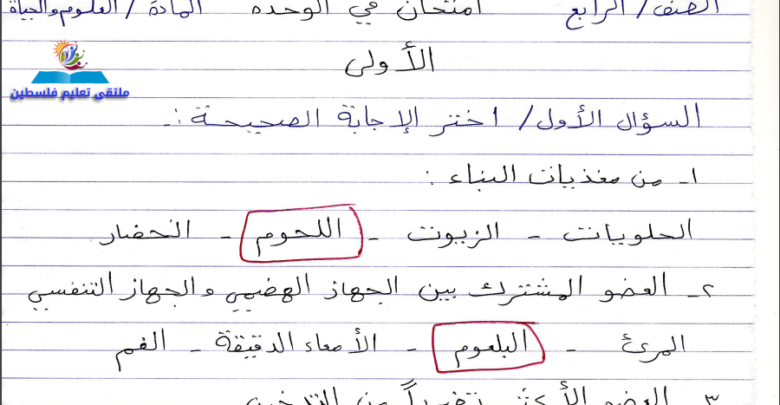 الصف / الرابع امتحان في الوحده المادة / العلوم والحياة
الأولى
ملتقى تعليم فلسطين
السؤال الأول / اختر الإجابة الصحيحة :-
١- من مغذيات البناء :
الحلويات - الزيوت - اللحوم - الخضار
٢- العضو المشترك بين الجهاز الهضمي والجهاز التنفسي
المرئ - البلعوم - الأمعاء الدقيقة - الفم
٣- العضو الأكثر تضرراً من التدخين